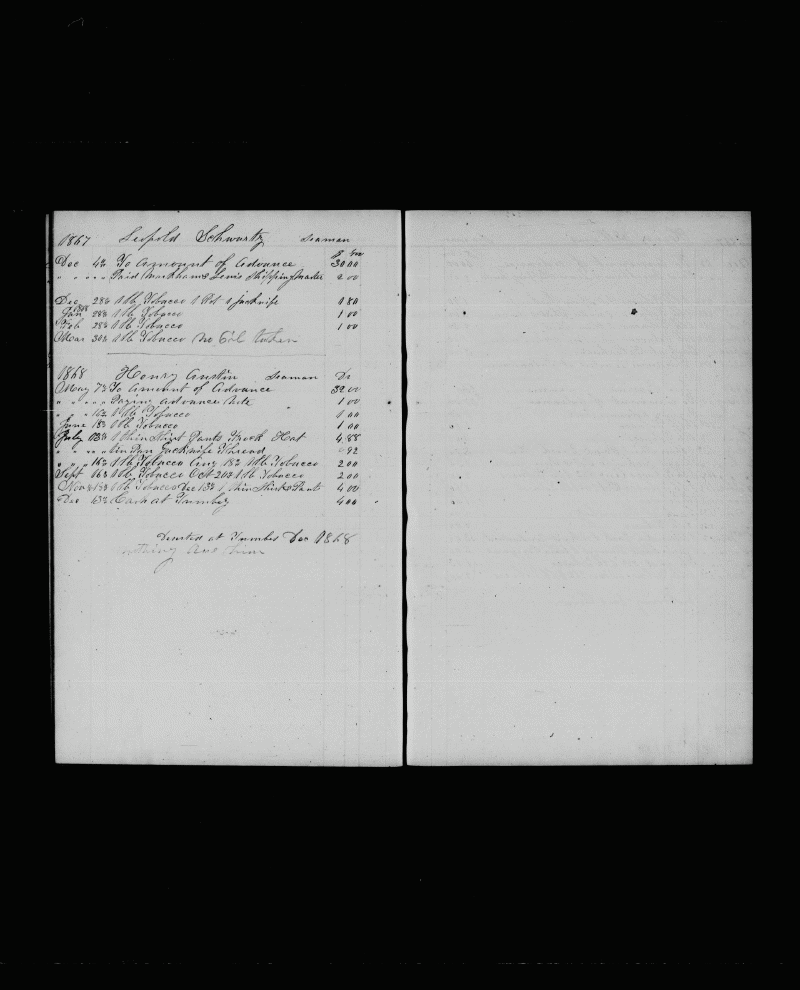 1867 Leopold Schwartz Seaman
Dec 4th To Amount of Advance 30 00
" " " " Paid Markham & Lewis Shipping Master 2 00
Dec 28th 1 lb Tobacco 1 Pot 1 jacknife 1 80
Jan 1868 28th 1 lb Tobacco 1 00
Feb 28th 1 lb Tobacco 1 00
Mar 30th 1 lb Tobacco No Oil taken
1868 Henry Austin Seaman Dr
May 7th To Amount of Advance 32 00
" " " " Paying Advance Note 1 00
" " " 16th 1 lb Tobacco 1 00
June 18th 1 lb Tobacco 1 00
July 13th 1 thin Shirt Pants Frock Hat 4.88
" " " " Tin Pan Jacknife Thread 92
" " " 16th 1 lb Tobacco Aug 18th 1 lb Tobacco 2 00
Sept 16th 1 lb Tobacco Oct 20th 1 lb Tobacco 2 00
Nov 18th 1 lb Tobacco Dec 13th 1 thin Shirt & Pants 4 00
Dec 16th Cash at Tumbez 4 00
Deserted at Tumbes Dec 1868
nothing due him